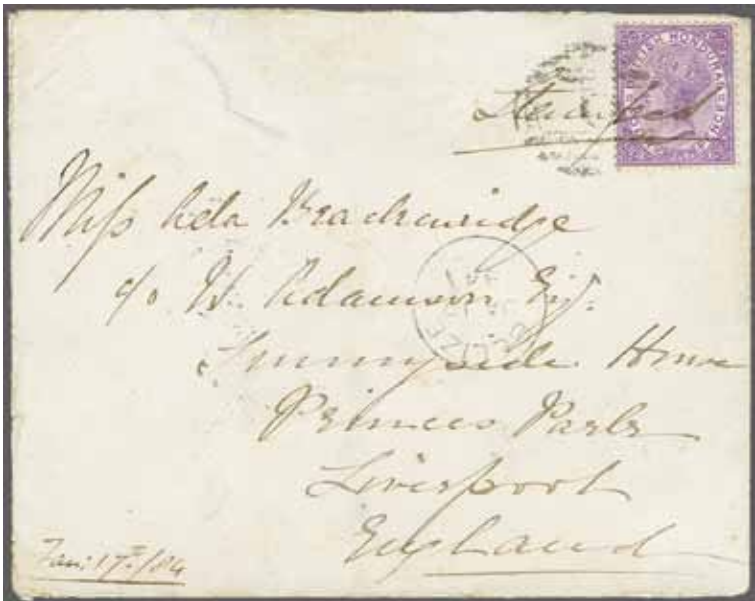 BRITISH HONDURAS
Stamped
Miss Ada
c/o W. Adamson Esq.
Sunnyside House
Princes Park
Liverpool
England
BELIZE
Jan: 17th/84